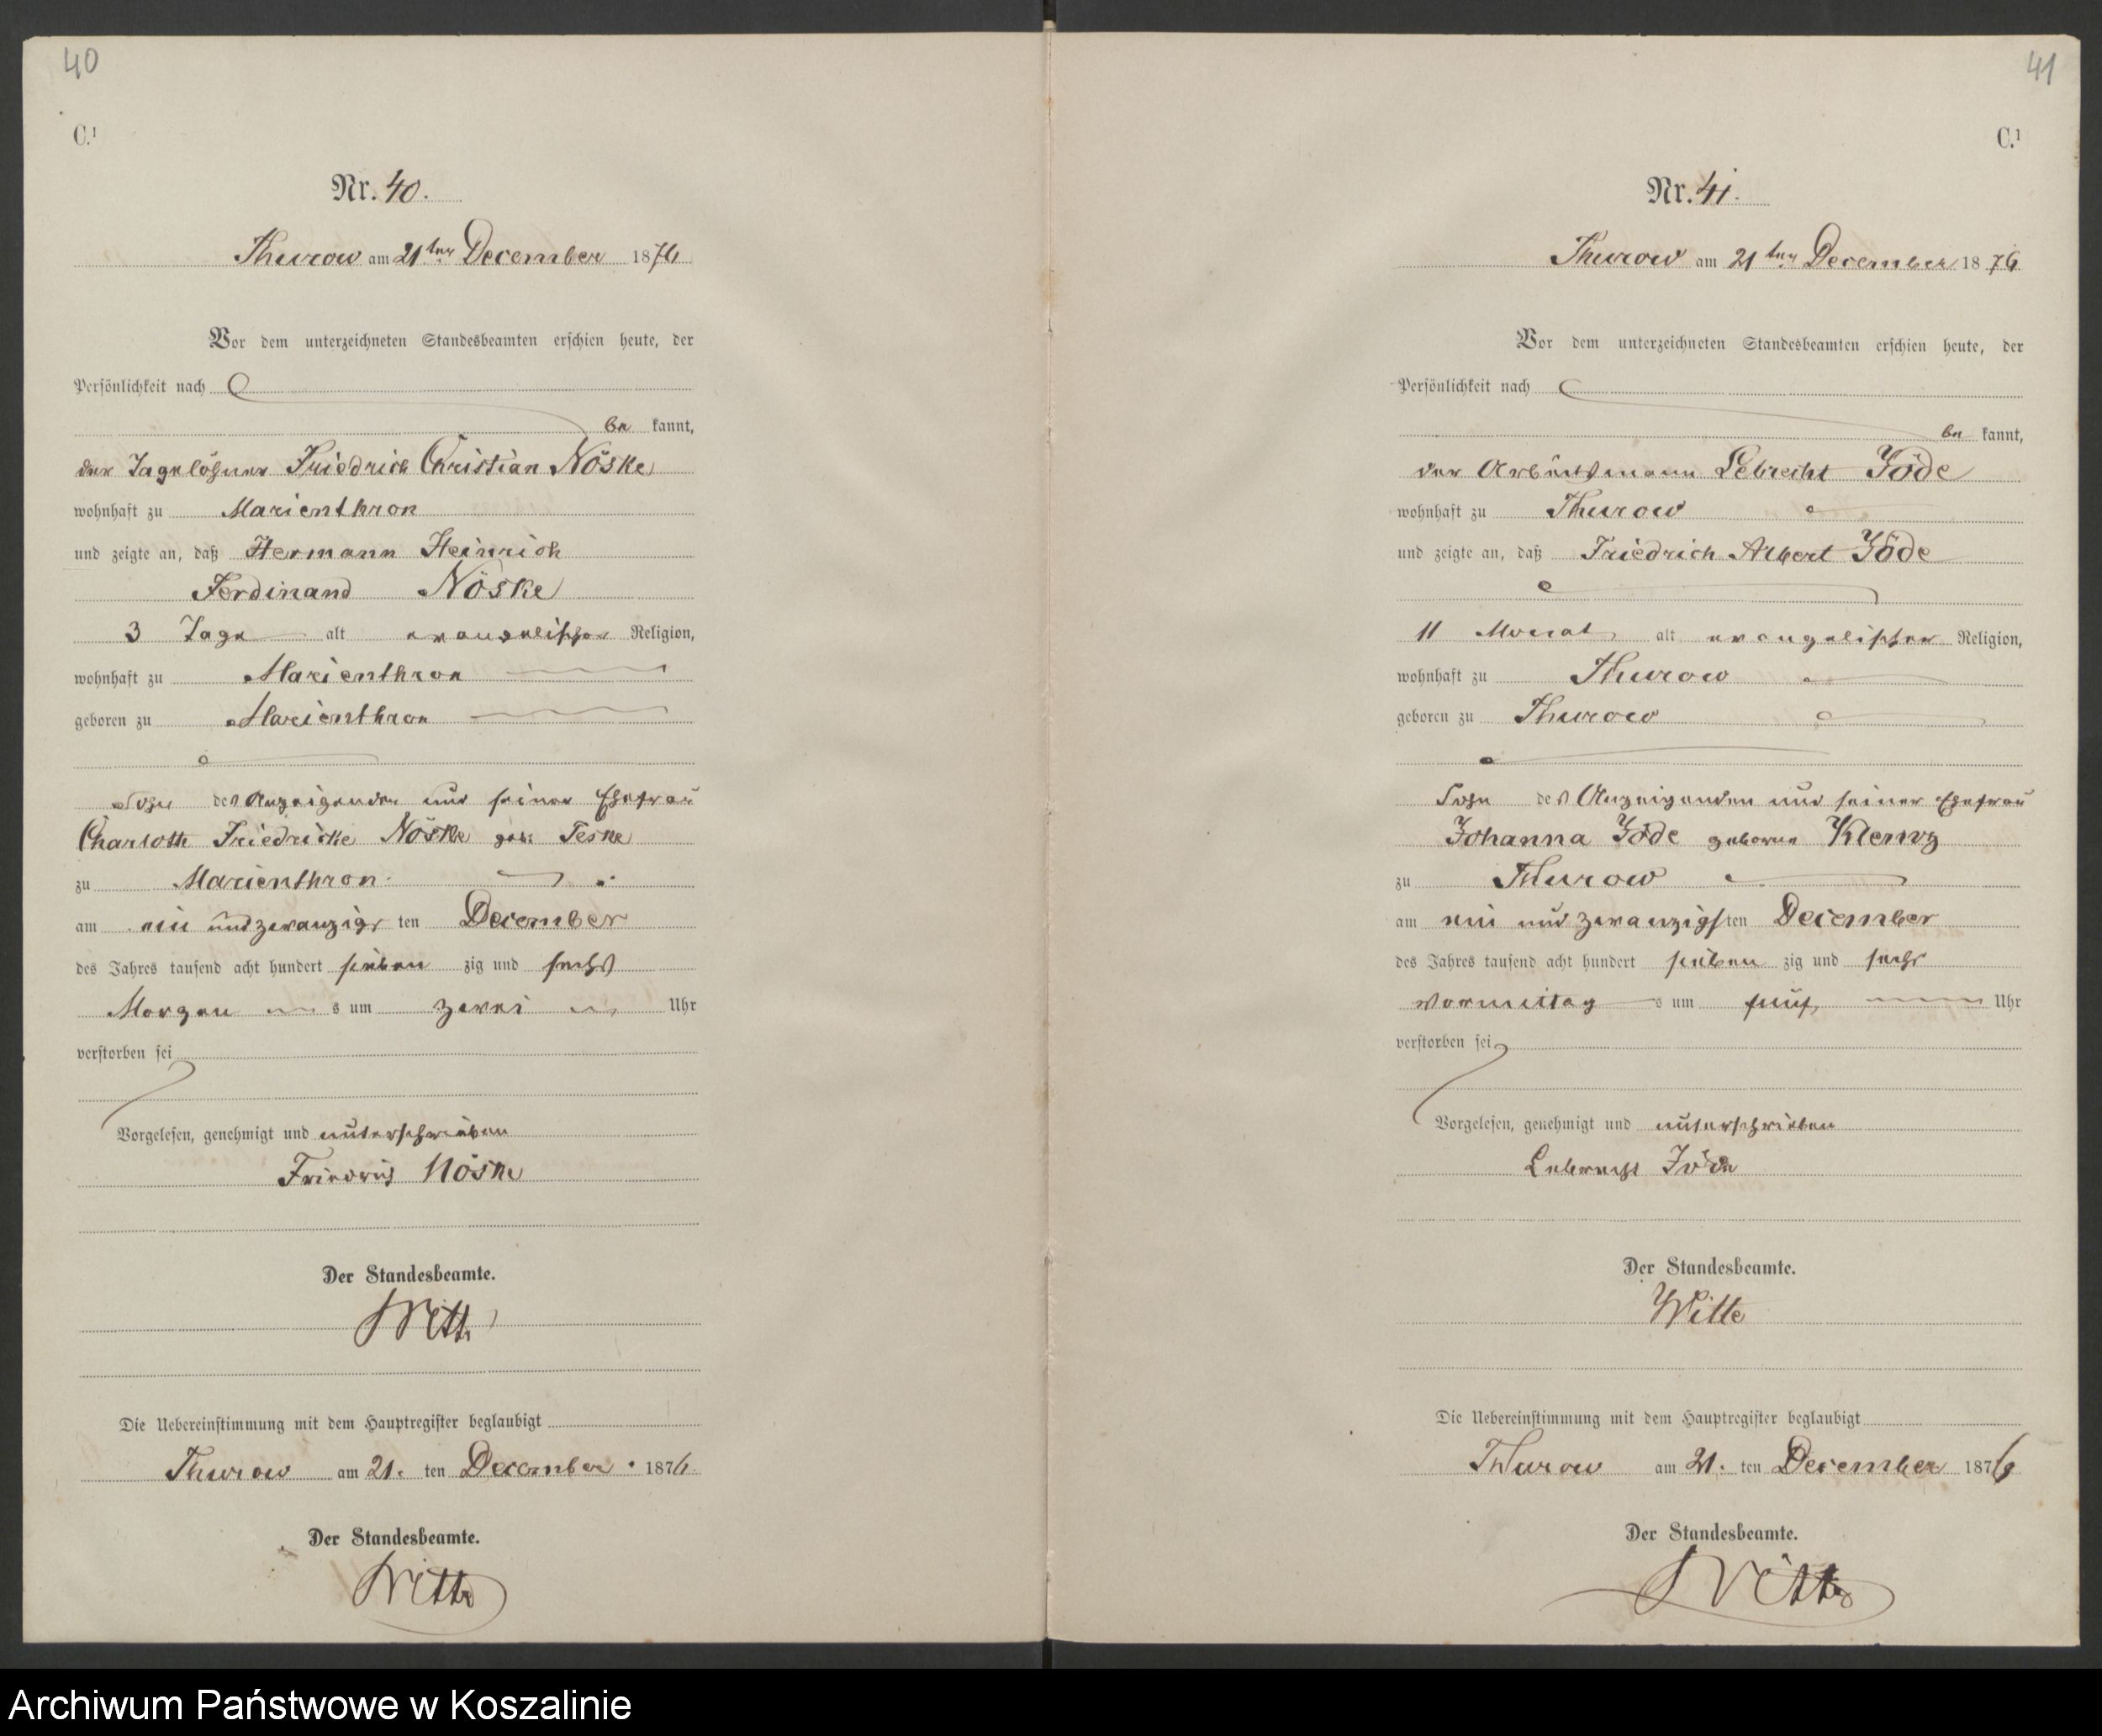 40
C.1
Nr. 40.
Thurow am 21ten December 1876
Vor dem unterzeichneten Standesbeamten erschien heute, der
Persönlichkeit nach
be kannt,
der Tagelöhner Friedrich Christian Nöske
wohnhaft zu Marienthron
und zeigte an, daß Hermann Heinrich
Ferdinand Nöske
3 Tage alt evangelischer Religion,
wohnhaft zu Marienthron
geboren zu Marienthron
Sohn des Anzeigenden und seiner Ehefrau
Charlotte Friedricke Nöske geb: Teske
zu Marienthron
am ein und zwanzigs ten December
des Jahres tausend acht hundert sieben zig und sechs
Morgen s um zwei Uhr
verstorben sei
Vorgelesen, genehmigt und unterschrieben
Friedrich Nöske
Der Standesbeamte.
Witte
Die Uebereinstimmung mit dem Hauptregister beglaubigt
Thurow am 21. ten December 1876.
Der Standesbeamte.
Witte
41
C.1
Nr. 41.
Thurow am 21ten December 1876
Vor dem unterzeichneten Standesbeamten erschien heute, der
Persönlichkeit nach
be kannt,
der Arbeitsmann Lebrecht Jöde
wohnhaft zu Thurow
und zeigte an, daß Friedrich Albert Jöde
11 Monat alt evangelischer Religion,
wohnhaft zu Thurow
geboren zu Thurow
Sohn des Anzeigenden und seiner Ehefrau
Johanna Jöde geborne
zu Thurow
am ein und zwanzigsten December
des Jahres tausend acht hundert sieben zig und sechs
Vormittag s um fünf Uhr
verstorben sei
Vorgelesen, genehmigt und unterschrieben
Lebrecht Jöde
Der Standesbeamte.
Witte
Die Uebereinstimmung mit dem Hauptregister beglaubigt
Thurow am 21. ten December 1876
Der Standesbeamte.
Witte
Archiwum Państwowe w Koszalinie